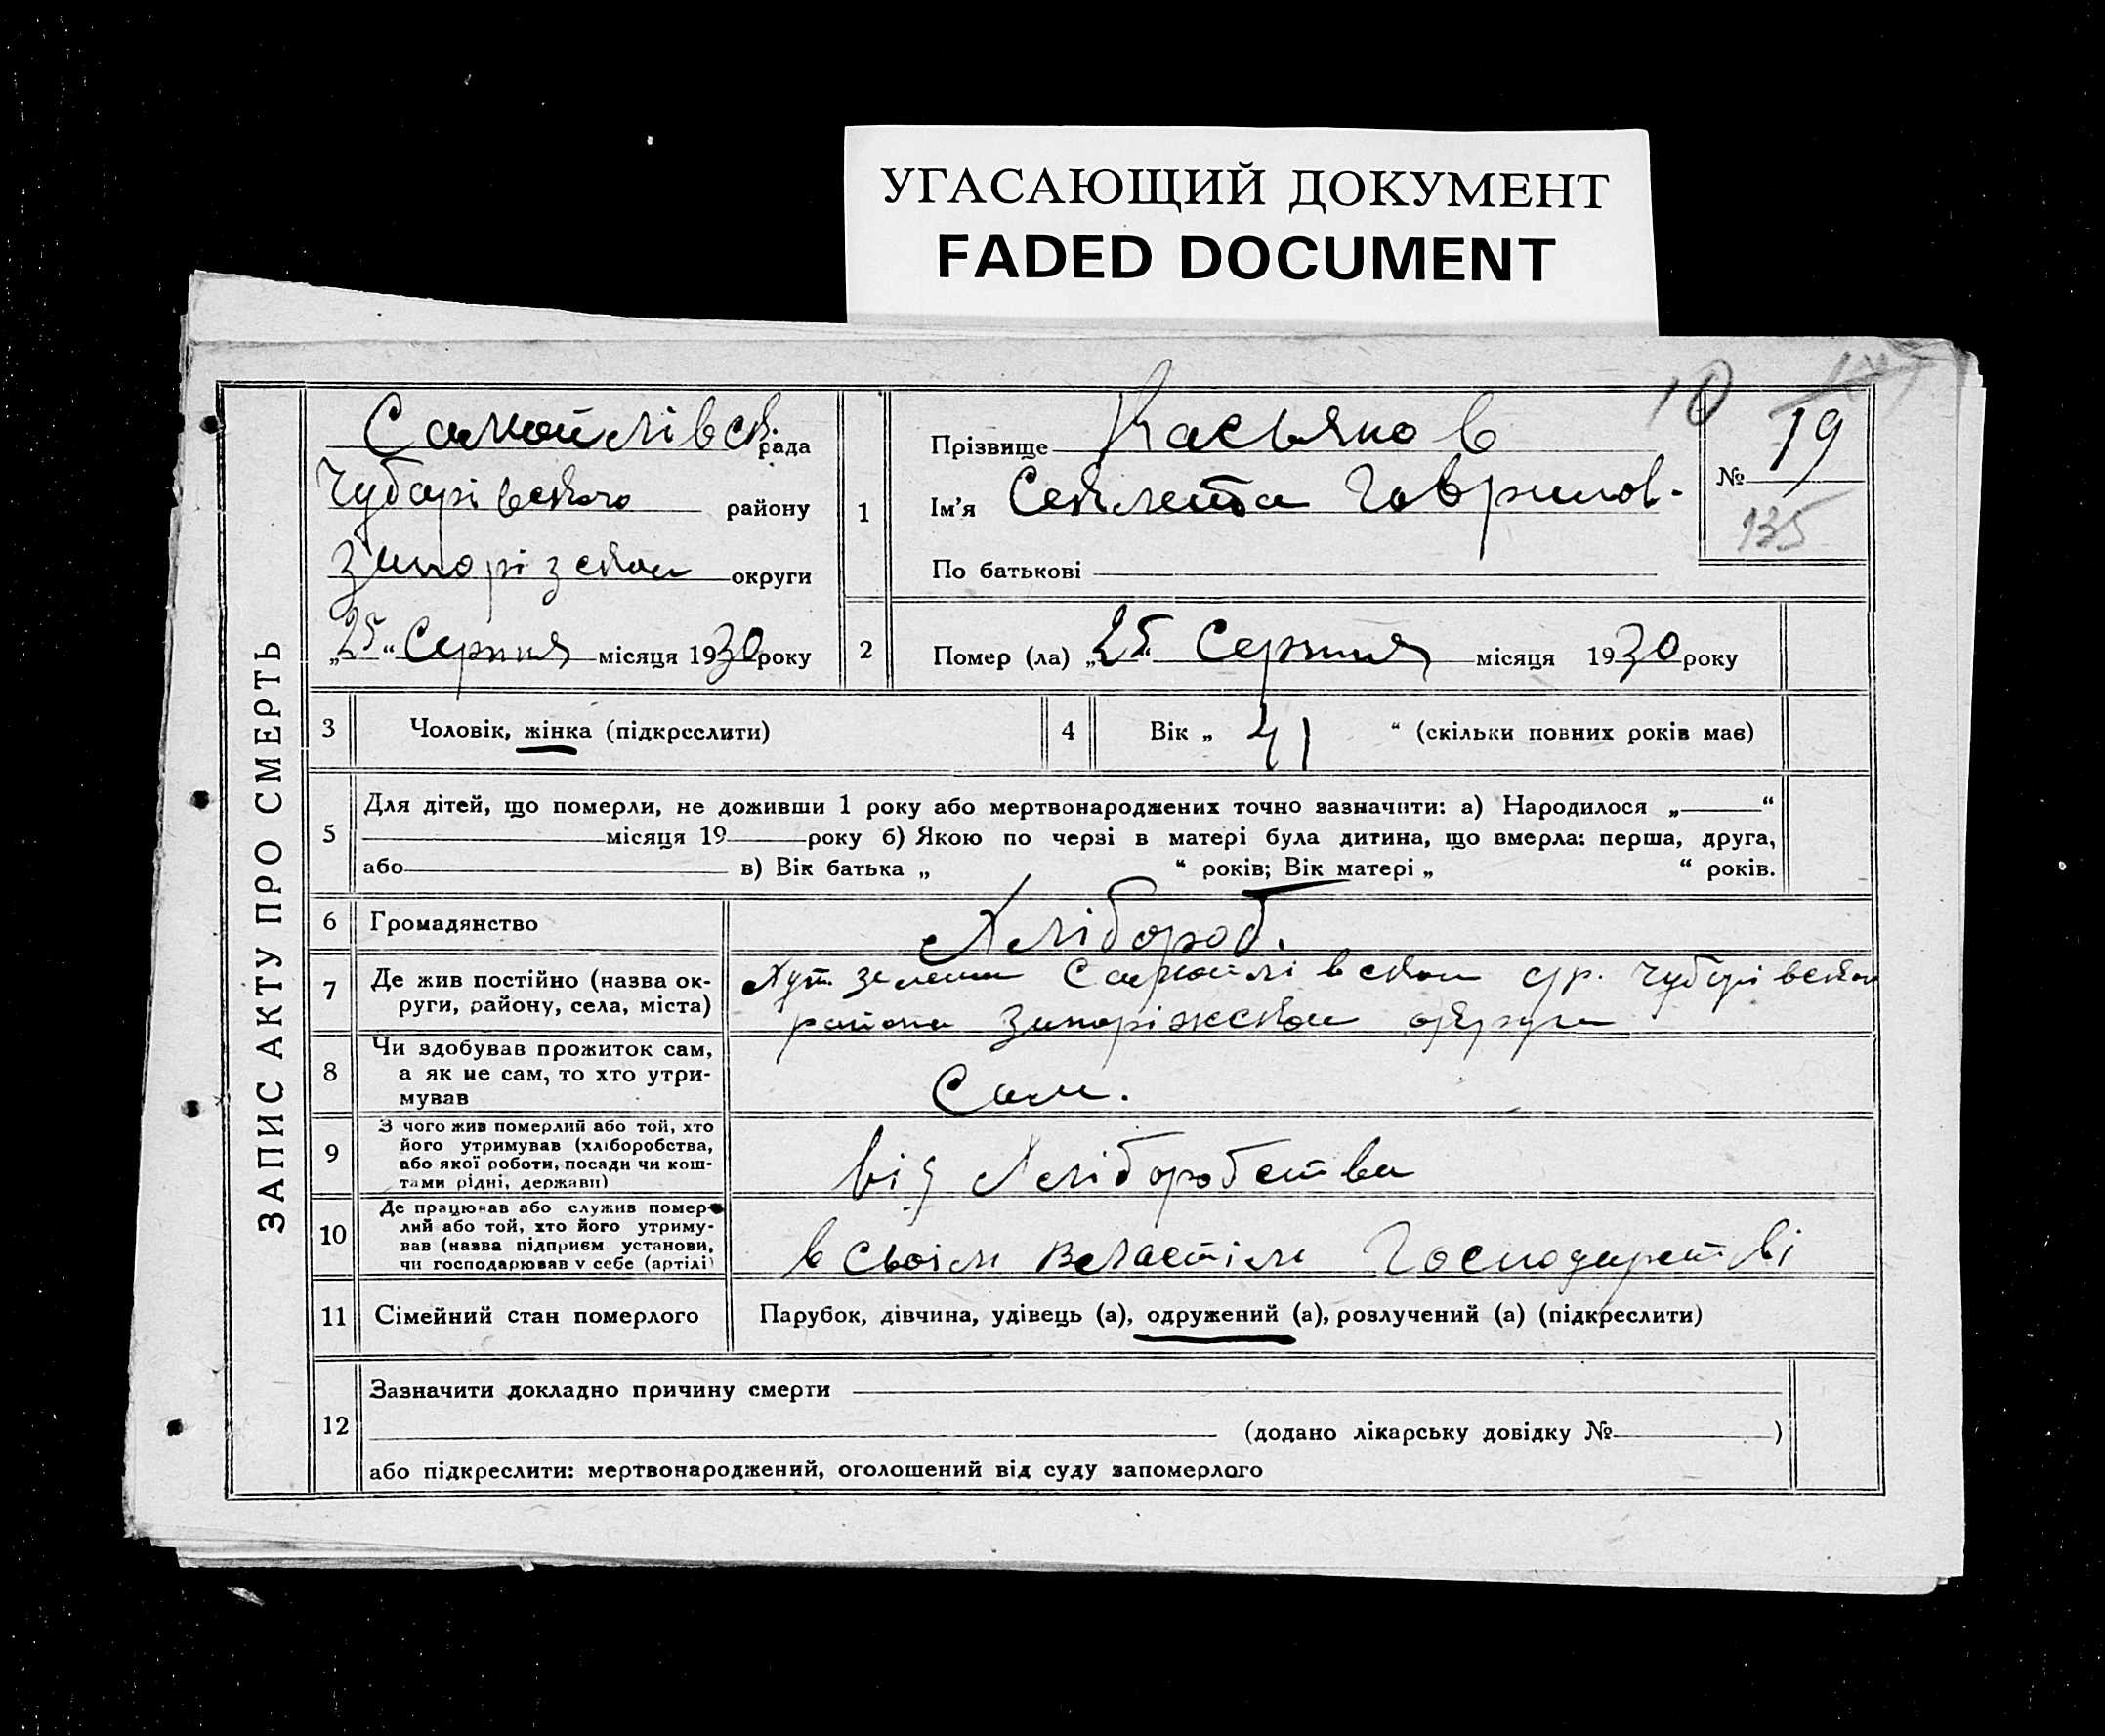 УГАСАЮЩИЙ ДОКУМЕНТ
FADED DOCUMENT
ЗАПИС АКТУ ПРО СМЕРТЬ
Самойлівськ. рада
Чубарівського району
Запорізской округи
„25“ Серпня місяця 1930 року
1
Прізвище Касьянов
Ім’я Секлета Гаврилов.
По батькові
10
№ 19
135
2
Помер (ла) „25“ Серпня місяця 1930 року
3 Чоловік, жінка (підкреслити)
4 Вік „ 41 “ (скільки повних років мав)
5
Для дітей, що померли, не доживши 1 року або мертвонароджених точно зазначити: а) Народилося „ “
місяця 19 року б) Якою по черзі в матері була дитина, що вмерла: перша, друга,
або в) Вік батька „ “ років; Вік матері „ “ років.
6 Громадянство Хлібороб.
7 Де жив постійно (назва ок-
руги, району, села, міста)
Хут. Зелена Самойлівской с/р. Чубарівской
района Запоріжской округи
8 Чи здобував прожиток сам,
а як не сам, то хто утри-
мував
Сам.
9 З чого жив померлий або той, хто
його утримував (хліборобства,
або якої роботи, посади чи кош-
тами рідні, держави)
від Хліборобства
10 Де працював або служив помер-
лий або той, хто його утриму-
вав (назва підприєм установи,
чи господарював у себе (артілі)
в своїм властім Господарстві
11 Сімейний стан померлого Парубок, дівчина, удівець (а), одружений (а), розлучений (а) (підкреслити)
12
Зазначити докладно причину смерти
(додано лікарську довідку № )
або підкреслити: мертвонароджений, оголошений від суду запомерлого